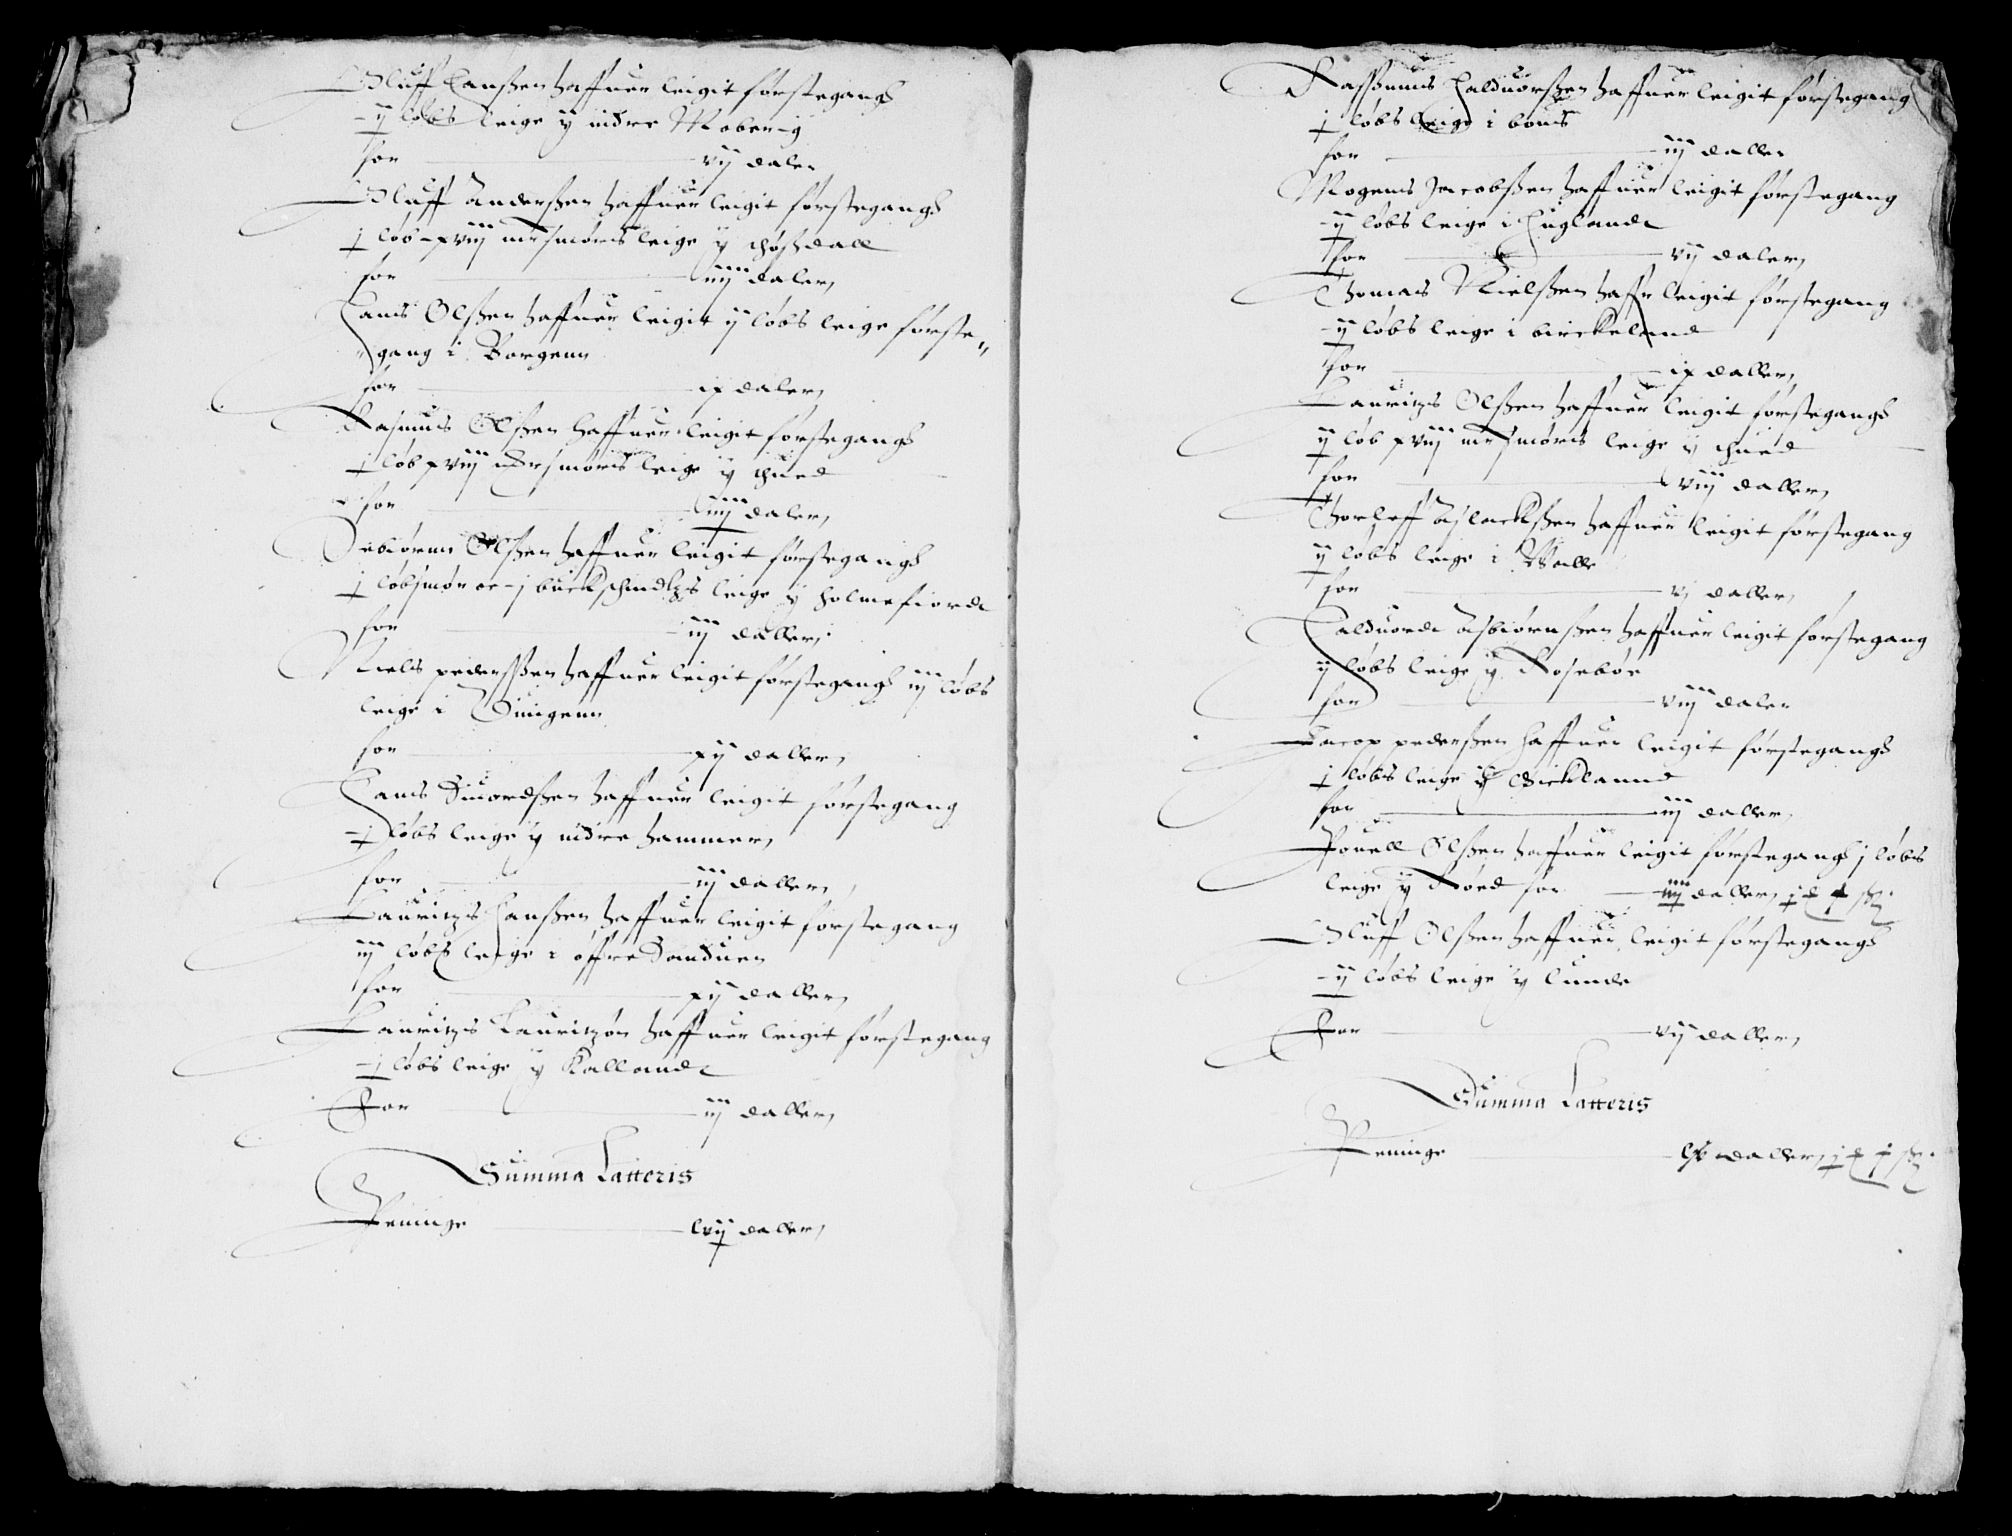 Oluff Hanßen haffuer leigit førstegangh
ij løbs leige y nidre Moberig
for vij daler
Oluff Anderßen haffuer leigit førstegangh
j løb xviij mr smørs leige y
for iiij daler
Hans Olßen haffuer leigit ij løbs leige første„
gang i Borgenn
for ix daler
Rasmus Olßen haffuer leigit førstegangh
j løb xviij mr smørs leige y
for iiij daler
Olßen haffuer leigit førstegangh
j løb smør oc j buckschinds leige y holmefiord
for iij daller
Niels pederßen haffuer leigit førstegangh iij løbs
leige i
for xij daller
Hans Siuordßen haffuer leigit førstegang
j løbs leige y nidre hammer
for iij daller
Lauritzs Hanßen haffuer leigit førstegang
iij løbs leige i offre Sanduen
for xij daller
Lauritzs Lauritzøn haffuer leigit førstegang
j løbs leige y Kalland
For iij daller
Summa Latteris
Peninge lvij daller
Rassmus Halduorßen haffuer leigit førstegang
j løbs leige i
for iij daller
Mogens Jacobßen haffuer leigit førstegang
ij løbs leige i Englande
for vij daler
Thomas Nielßen haffr leigit førstegang
ij løbs leige i birckeland
for ix daller
Lauritzs Olßen haffuer leigit førstegangh
ij løb xviij mr smørs leige y
for viij daller
Thorleff Aslackßen haffuer leigit førstegang
ij løbs leige i Walle
for daller
Halduord Asbiørnßen haffuer leigit førstegang
ij løbs leige y Rosebøe
for viij daler
Jacop pederßen haffuer leigit førstegangh
j løbs leige y Birckland
for iij daller
Pouell Olßen haffuer leigit førstegangh j løbs
leige y Røed for iiij daller
Oluff Olßen haffuer leigit førstegangh
ij løbs leige y lunde
For vij daller
Summa Latteris
Peninge daller